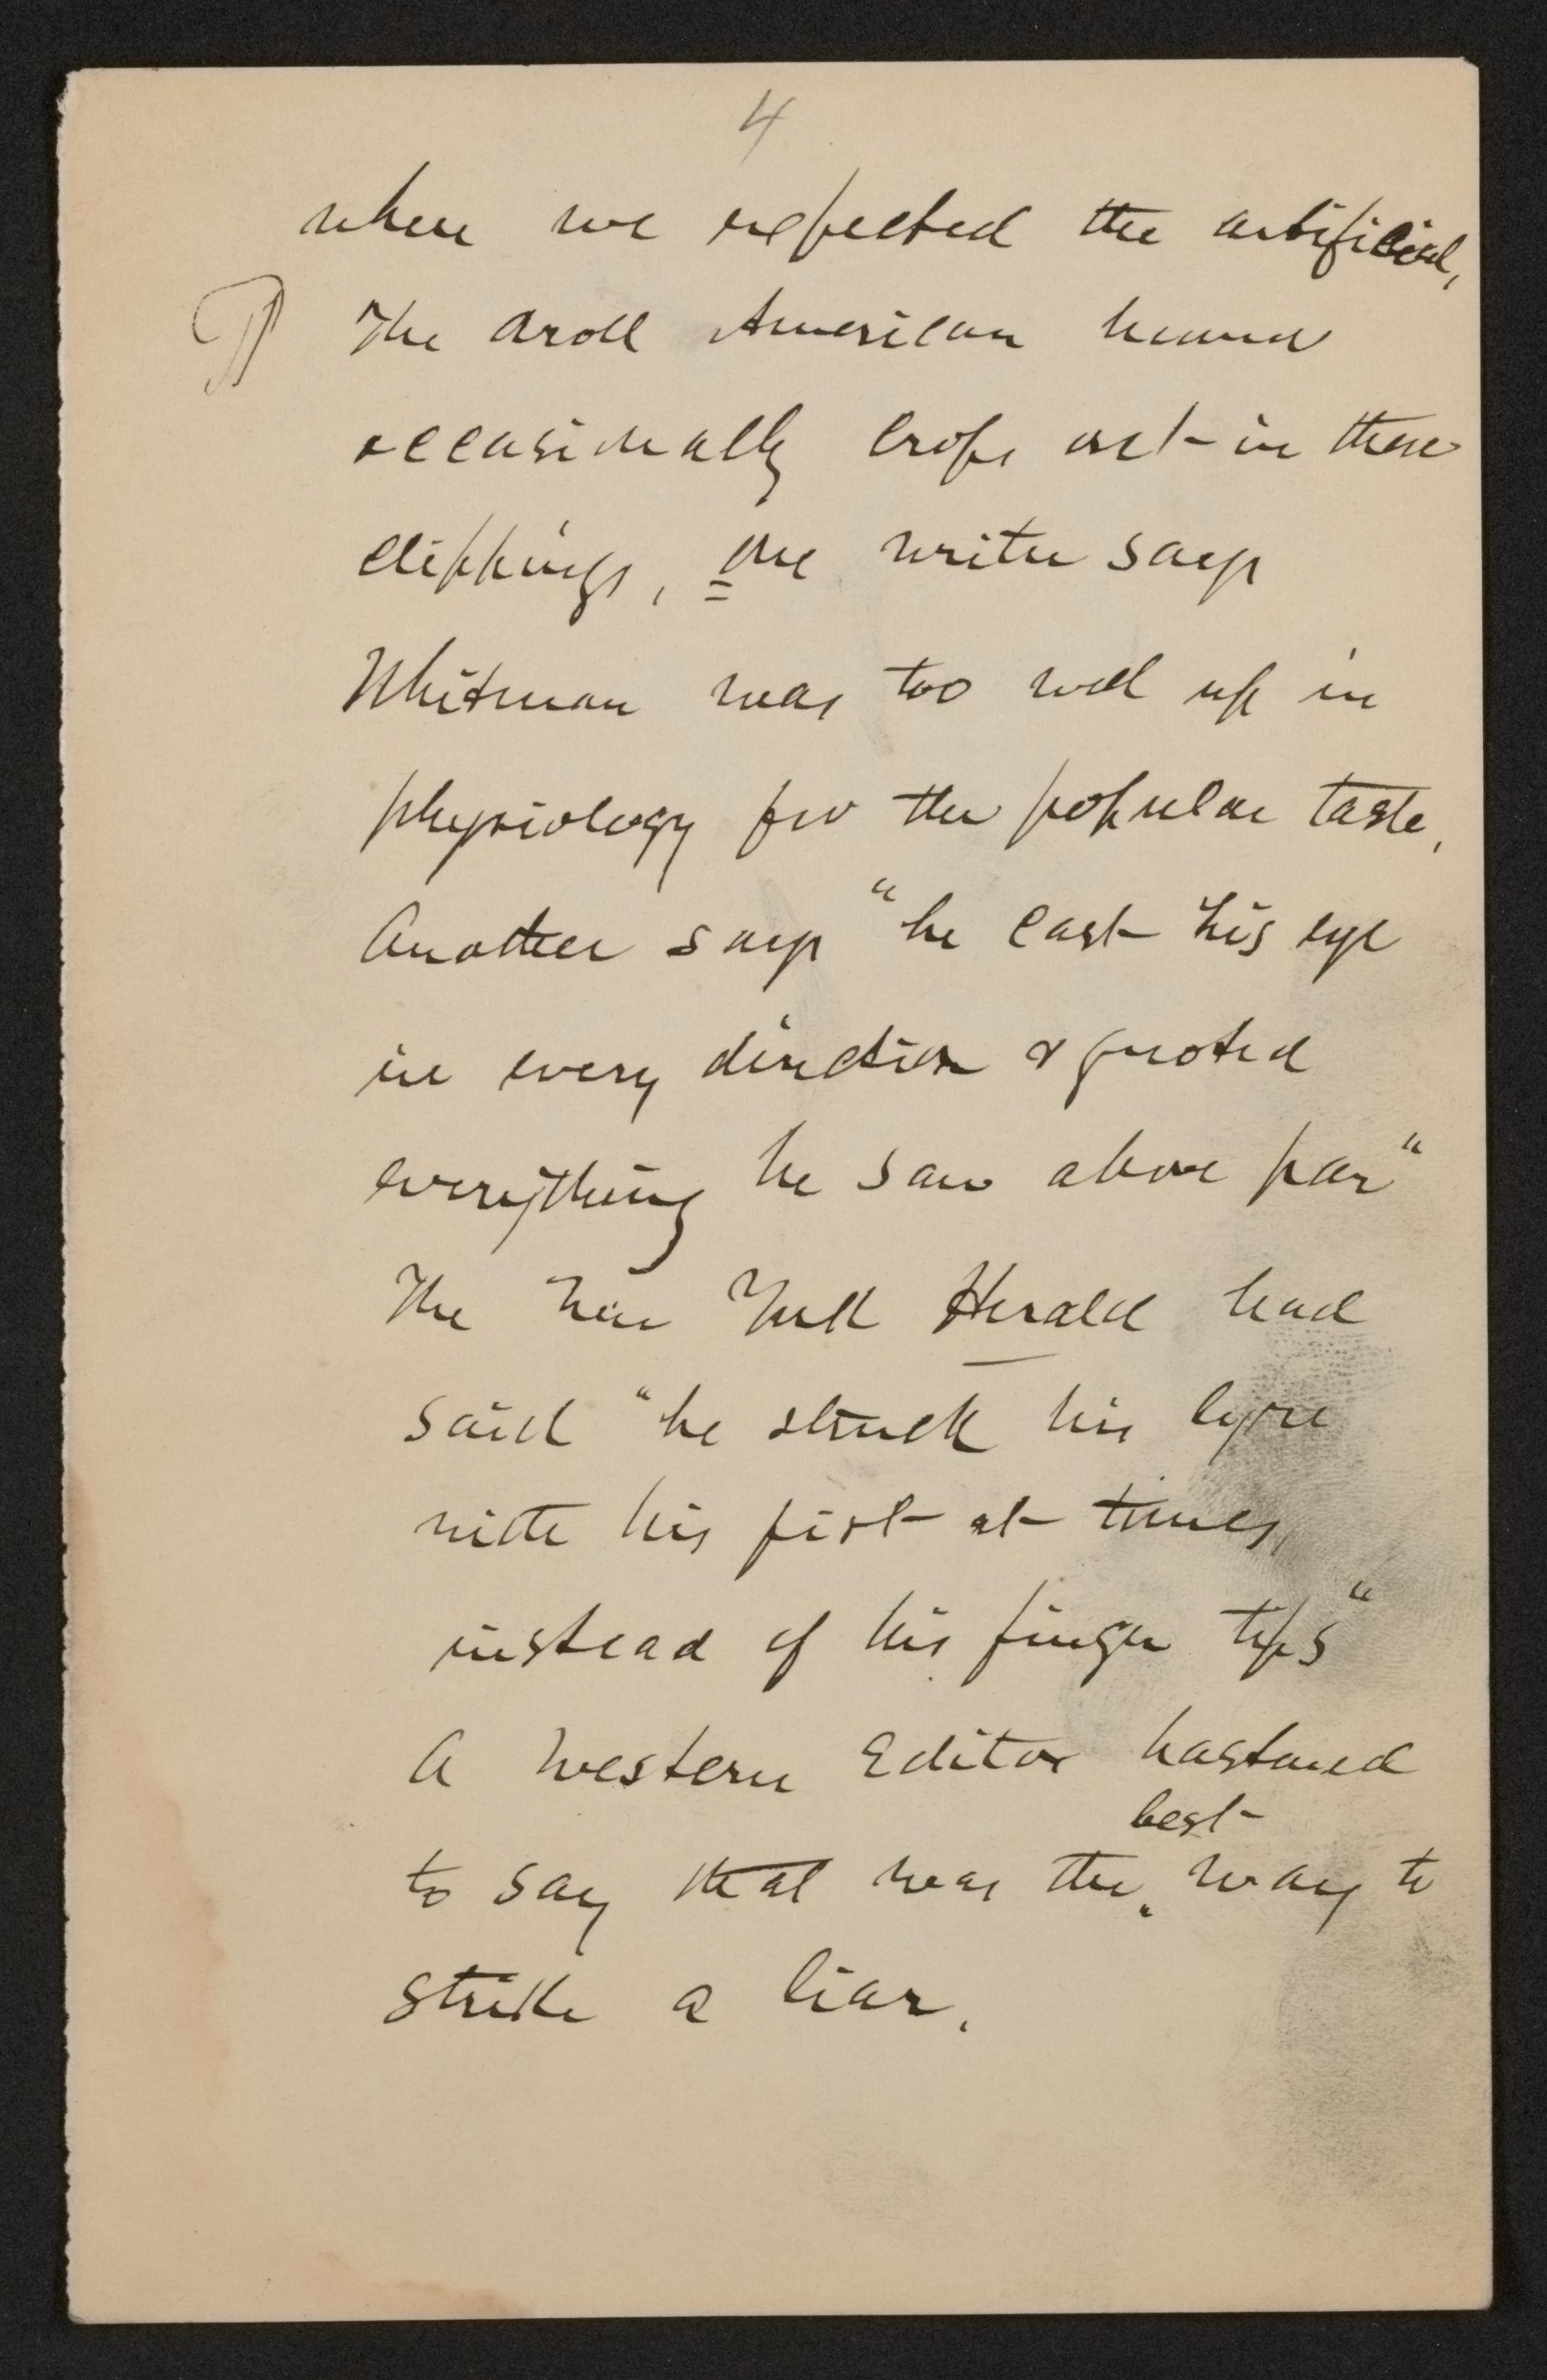 4
where we expected the artificial,
¶ The droll American humor
occasionally crops out in these
clippings, one writer says
Whitman was too well up in
physiology for the popular taste,
Another says "he cast his eye
in every direction & quoted
everything he saw above par"
The New York Herald had
said "he struck his lyre
with his fist at times,
instead of his finger tips"
A western Editor hastened
best
to say that was the way to
strike a liar.